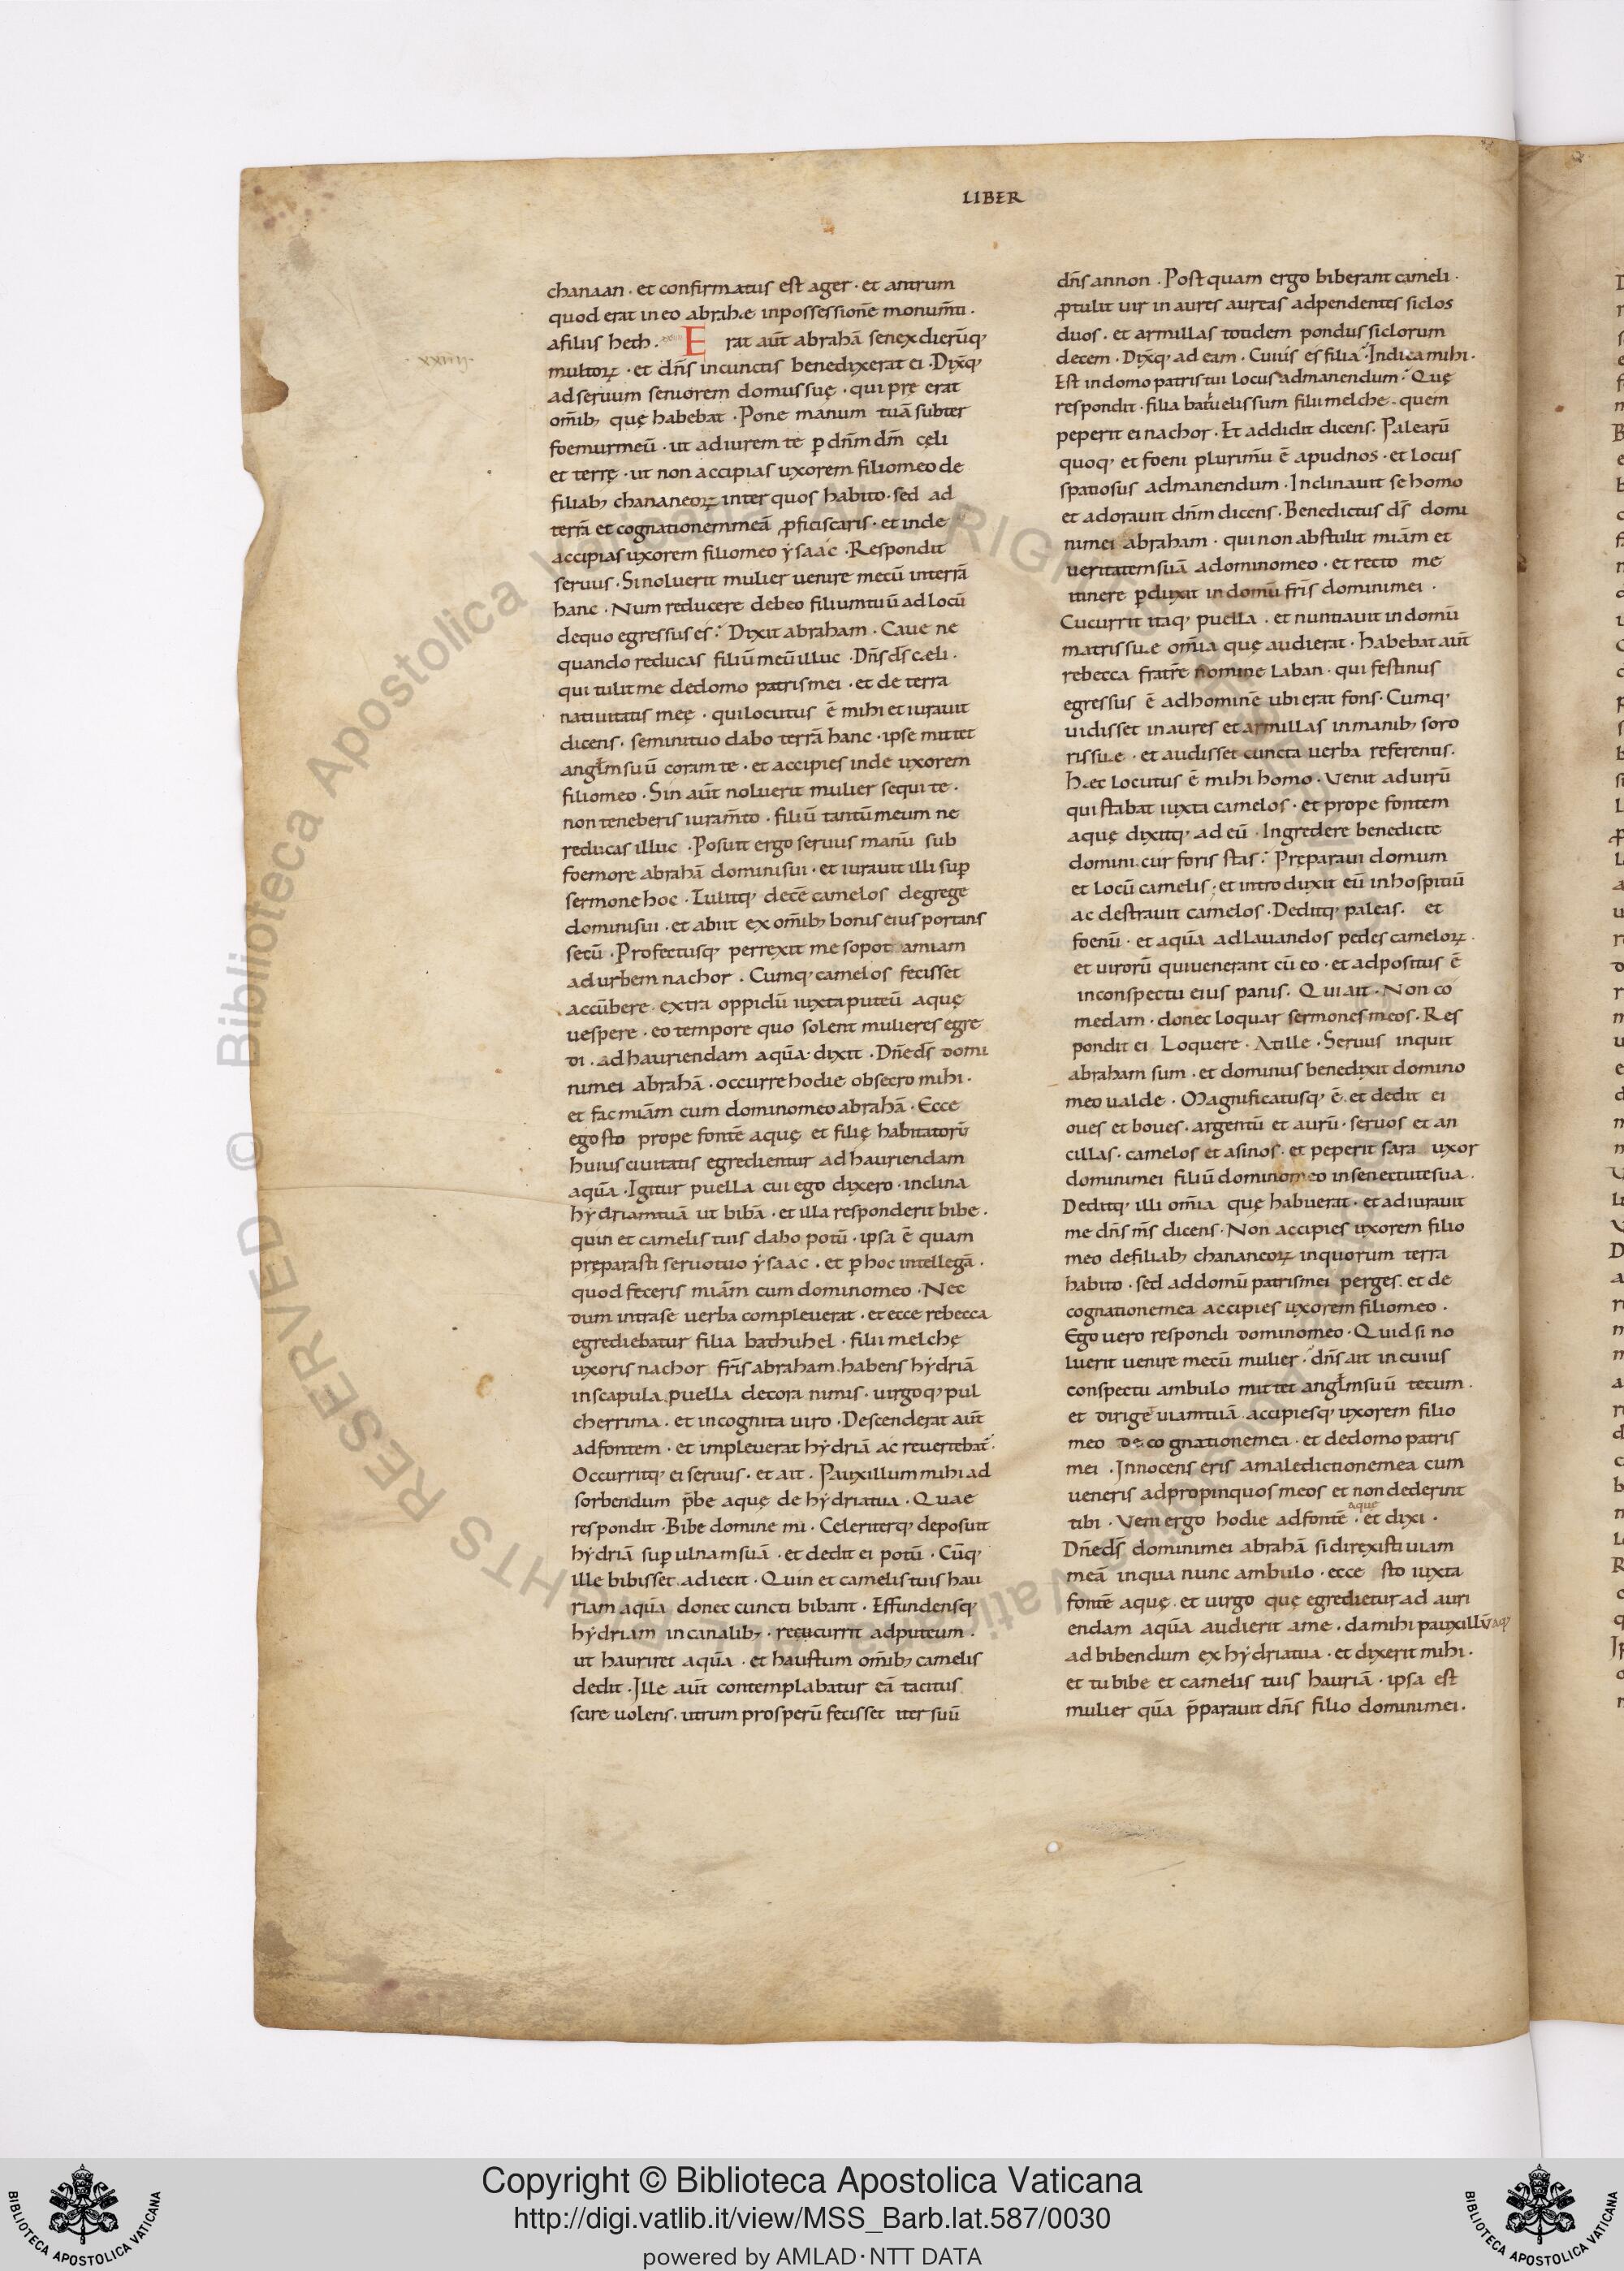 LIBER
chanaan · et confirmatus est ager · et antrum
quod erat in eo abrahæ inpossessioñe monum̃ti ·
afiliis heth · E rat aut̃ abrahã senex dierũq;
multoꝝ · et dñs incunctis benedixerat ei · Dix̃q;
adseruum seniorem domus suę · qui pre erat
om̃ib; quę habebat · Pone manum tuã subter
foemurmeũ · ut adiurem te ꝑ dñm dm̃ cęli
et terrę · ut non accipias uxorem filiomeo de
filiab; chananeoꝝ inter quos habito · sed ad
terrã et cognationemmeã ꝓficiscaris · et inde
accipias uxorem filiomeo ẏsaac · Respondit
seruus · Sinoluerit mulier uenire mecũ interrã
hanc · Num reducere debeo filiumtuũ adlocũ
dequo egressus es? Dixit abraham · Caue ne
quando reducas filiũ meũ illuc · Dñs ds̃ cæli ·
qui tulit me dedomo patris mei · et de terra
natiuitatis meę · quilocutus ẽ mihi et iurauit
dicens · seminituo dabo terrã hanc · ipse mittet
angłm suũ coram te · et accipies inde uxorem
filiomeo · Sin aut̃ noluerit mulier sequi te ·
non teneberis iuram̃to · filiũ tantũ meum ne
reducas illuc · Posuit ergo seruus manũ sub
foemore abrahã dominisui · et iurauit illi suꝑ
sermone hoc · Tulitq; decẽ camelos degrege
dominisui · et abiit ex om̃ib; bonis eius portans
secũ · Profectusq; perrexit mesopotamiam
adurbem nachor · Cumq; camelos fecisset
accũbere · extra oppidũ iuxta puteũ aquę
uespere · eo tempore quo solent mulieres egre
di · adhauriendam aquã · dixit · Dñe ds̃ domi
nimei abrahã · occurre hodie obsecro mihi ·
et fac miãm cum dominomeo abrahã · Ecce
ego sto prope fontẽ aquę et filię habitatorũ
huius ciuitatis egredientur ad hauriendam
aquã · Igitur puella cui ego dixero · inclina
hẏdriamtuã ut bibã · et illa responderit bibe ·
quin et camelis tuis dabo potũ · ipsa ẽ quam
pręparasti seruotuo ẏsaac · et ꝑ hoc intellegã ·
quod feceris miãm cum dominomeo · Nec
dum intra se uerba compleuerat · et ecce rebecca
egrediebatur filia bathuhel · filii melchę
uxoris nachor fr̃is abraham · habens hẏdriã
inscapula puella decora nimis · uirgoq; pul
cherrima · et incognita uiro · Descenderat aut̃
adfontem · et impleuerat hẏdriã ac reuertebat̃ ·
Occurritq; ei seruus · et ait · Pauxillum mihi ad
sorbendum p̃be aquę de hẏdriatua · Quae
respondit · Bibe domine mi · Celeriterq; deposuit
hẏdriã suꝑ ulnam suã · et dedit ei potũ · Cũq;
ille bibisset adiecit · Quin et camelis tuis hau
riam aquã donec cuncti bibant · Effundensq;
hẏdriam incanalib; · recucurrit adputeum ·
ut hauriret aquã · et haustum om̃ib; camelis
dedit · Ille aut̃ contemplabatur eã tacitus
scire uolens · utrum prosperũ fecisset iter suũ
dñs annon · Postquam ergo biberant cameli ·
ꝓtulit uir inaures aureas adpendentes siclos
duos · et armillas totidem pondus siclorum
decem · Dix̃q; ad eam · Cuius es filia? Indica mihi ·
Est in domo patris tui locus admanendum? Quę
respondit · filia batuelis sum filii melche · quem
peperit ei nachor · Et addidit dicens · Palearũ
quoq; et foeni plurimũ ẽ apud nos · et locus
spatiosus admanendum · Inclinauit se homo
et adorauit dñm dicens · Benedictus ds̃ domi
nimei abraham · qui non abstulit miãm et
ueritatem suã adominomeo · et recto me
itinere ꝑduxit in domũ fr̃is dominimei ·
Cucurrit itaq; puella · et nuntiauit in domũ
matris suæ om̃ia quę audierat · habebat aut̃
rebecca fratrẽ nomine laban · qui festinus
egressus ẽ adhominẽ ubi erat fons · Cumq;
uidisset inaures et armillas inmanib; soro
ris suæ · et audisset cuncta uerba referentis ·
Hæc locutus ẽ mihi homo · Venit ad uirũ
qui stabat iuxta camelos · et prope fontem
aquę dixitq; ad eũ · Ingredere benedicte
domini · cur foris stas? Preparaui domum
et locũ camelis · et introduxit eũ in hospitiũ
ac destrauit camelos · Deditq; paleas · et
foenũ · et aquã adlauandos pedes cameloꝝ ·
et uirorũ quiuenerant cũ eo · et adpositus ẽ
inconspectu eius panis · Qui ait · Non co
medam · donec loquar sermones meos · Res
pondit ei Loquere · At ille · Seruus inquit
abraham sum · et dominus benedixit domino
meo ualde · Magnificatusq; ẽ · et dedit ei
oues et boues · argentũ et aurũ · seruos et an
cillas · camelos et asinos · et peperit sara uxor
dominimei filiũ dominomeo insenectutesua ·
Deditq; illi om̃ia quę habuerat · et adiurauit
me dñs m̃s dicens · Non accipies uxorem filio
meo defiliab; chananeoꝝ inquorum terra
habito · sed addomũ patrismei perges · et de
cognationemea accipies uxorem filiomeo ·
Ego uero respondi dominomeo · Quid si no
luerit uenire mecũ mulier? dñs ait in cuius
conspectu ambulo mittet angłm suũ tecum ·
et diriget uiamtuã accipiesq; uxorem filio
meo de cognationemea · et dedomo patris
mei · Innocens eris amaledictionemea cum
ueneris adpropinquos meos et non dederint
tibi · Veni ergo hodie adfontẽ aquę · et dixi ·
Dñe ds̃ dominimei abrahã si direxisti uiam
meã inqua nunc ambulo · ecce sto iuxta
fontẽ aquę · et uirgo quę egredietur ad auri
endam aquã audierit ame · da mihi pauxillũ aq;
ad bibendum ex hẏdriatua · et dixerit mihi ·
et tu bibe et camelis tuis hauriã · ipsa est
mulier quã p̃parauit dñs filio dominimei ·
· xxiiij ·
Copyright © Biblioteca Apostolica Vaticana
http://digi.vatlib.it/view/MSS_Barb.lat.587/0030
powered by AMLAD·NTT DATA
BIBLIOTECA APOSTOLICA VATICANA
BIBLIOTECA APOSTOLICA VATICANA